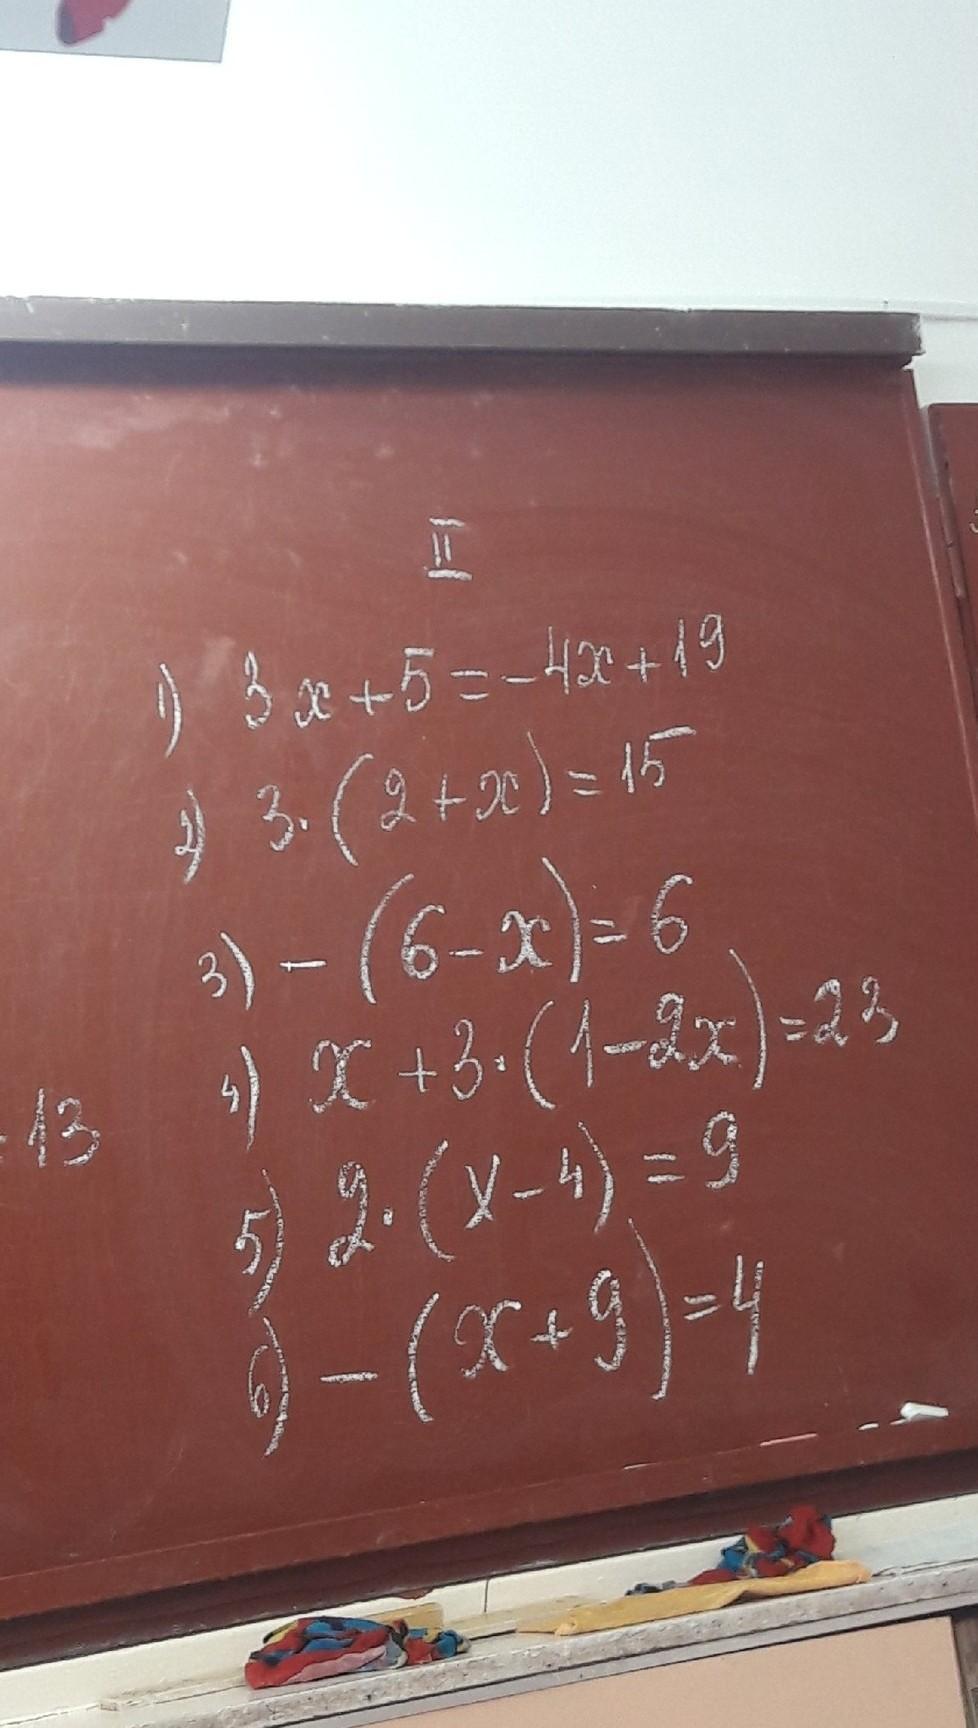 II
1) 3x+5=-4x+19
2) 3·(2+x)=15
3) -(6-x)=6
4) x+3·(1-2x)=23
5) 2·(x-4)=9
6) -(x+9)=4
13